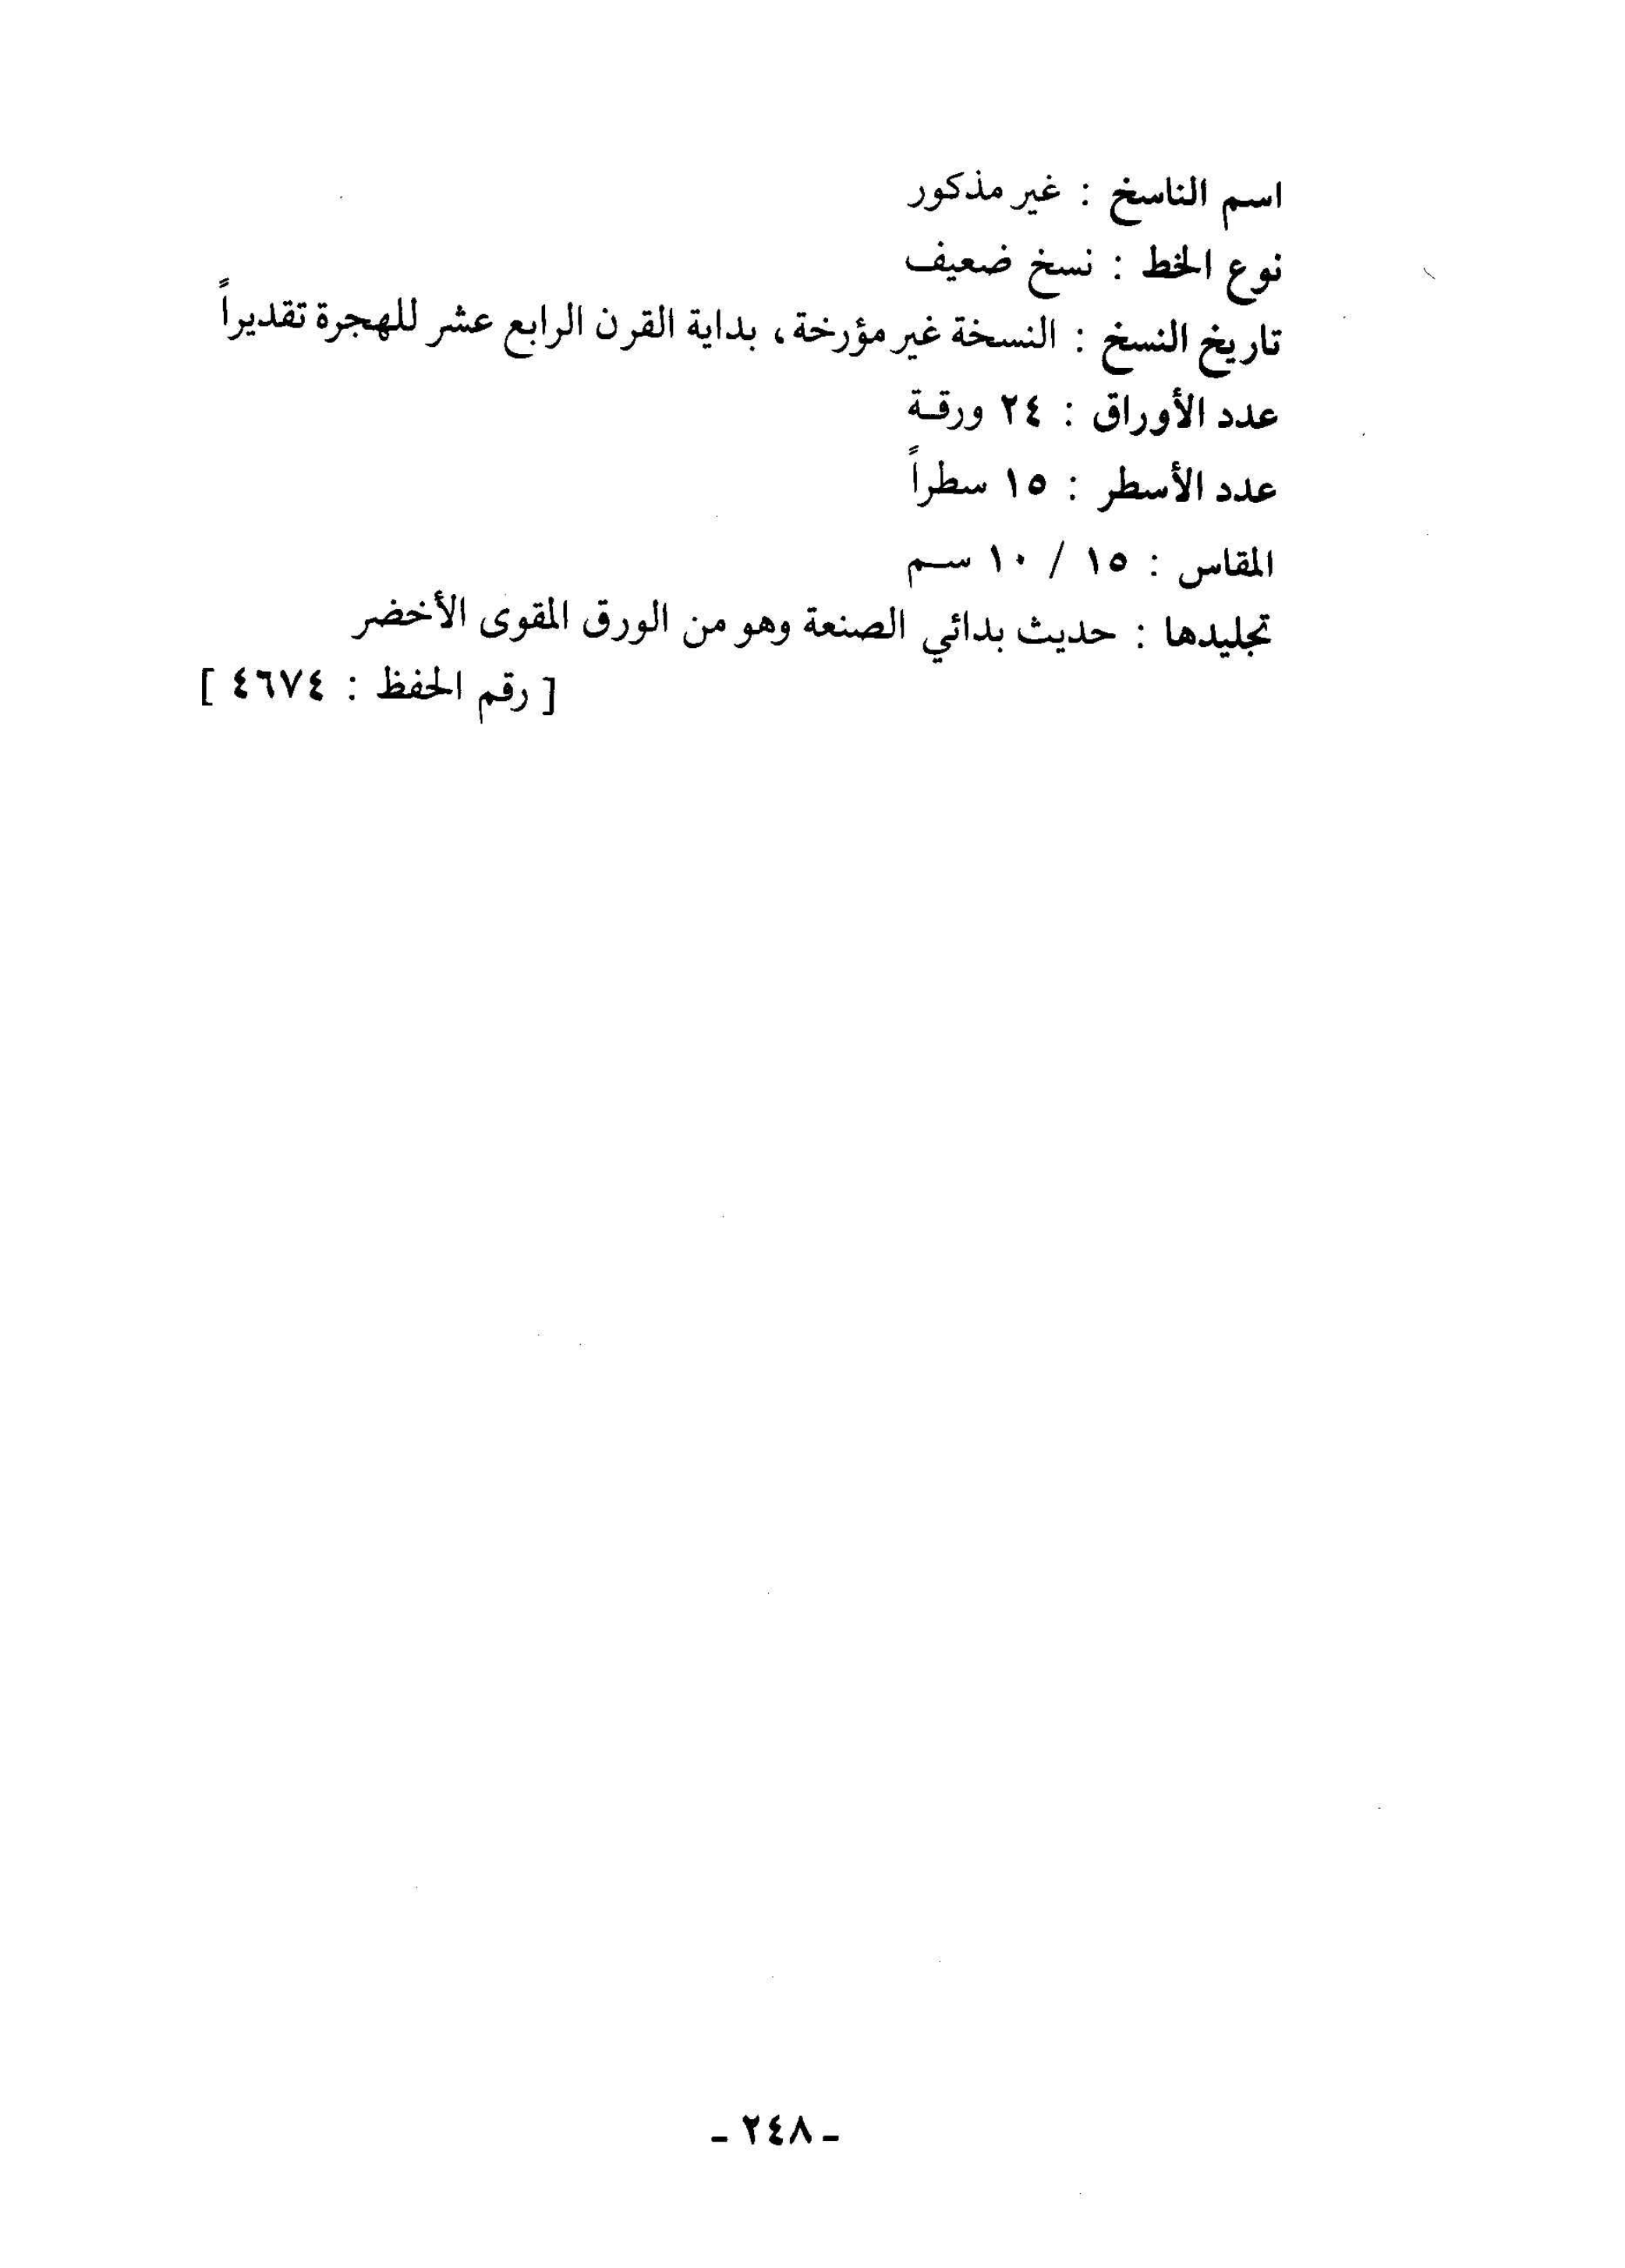 اسم الناسخ : غير مذكور
نوع الخط : نسخ ضعيف
تاريخ النسخ : النسخة غير مؤرخة ، بداية القرن الرابع عشر للهجرة تقديراً
عدد الأوراق : ٢٤ ورقـة
عدد الأسطر : ١٥ سطراً
المقاس : ١٥ / ١٠ سـم
تجليدها : حديث بدائي الصنعة وهو من الورق المقوى الأخضر
[ رقم الحفظ : ٤٦٧٤ ]
ـ ٢٤٨ ـ